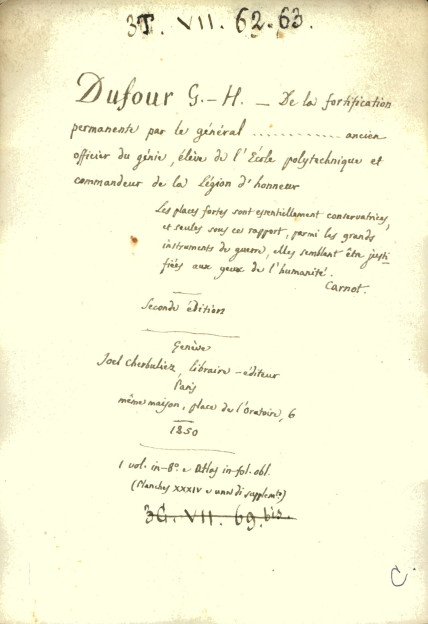 3T. VII. 62.63.
Dufour G.-H. — De la fortification
permanente par le général ............ ancien
officier du génie, élève de l'École polytechnique et
commandeur de la Légion d'honneur
Les places fortes sont essentiellement conservatrices,
et seules sous ce rapport, parmi les grands
instruments de guerre, elles semblent être justi
fiées aux yeux de l'humanité.
Carnot.
Seconde édition
Genève
Joel Cherbuliez, libraire-éditeur
Paris
même maison, place de l'Oratoire, 6
1850
1 vol. in-8º e Atlas in-fol. obl.
(Planches XXXIV e una di supplemto)
3G. VII. 69.bis.
C